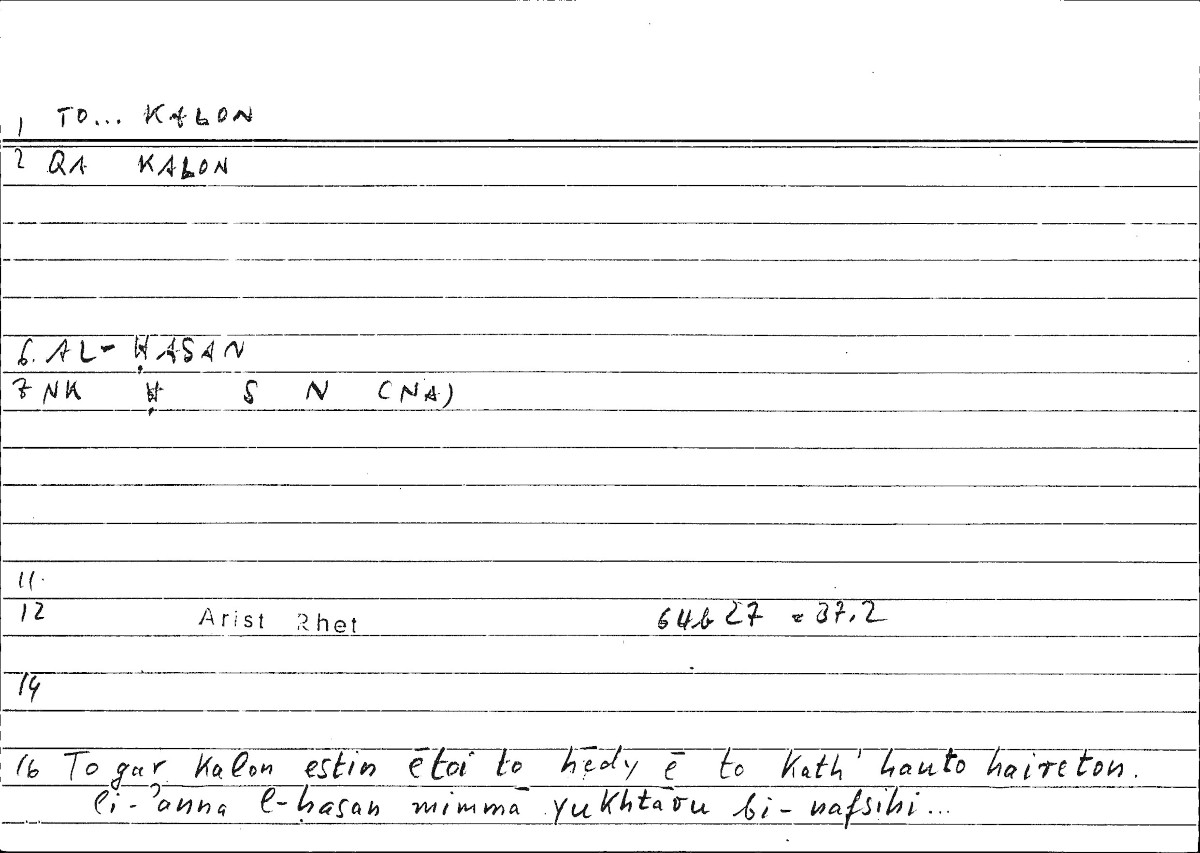 1 TO... KALON
2 QA KALON
6. AL-ḤASAN
7 NK Ḥ S N (NA)
11.
12 Arist Rhet 64b27 = 37.2
14
16 To gar kalon estin ētoi to hēdy ē to kath' hauto haireton.
li-'anna l-ḥasan mimmā yukhtāru bi-nafsihi...